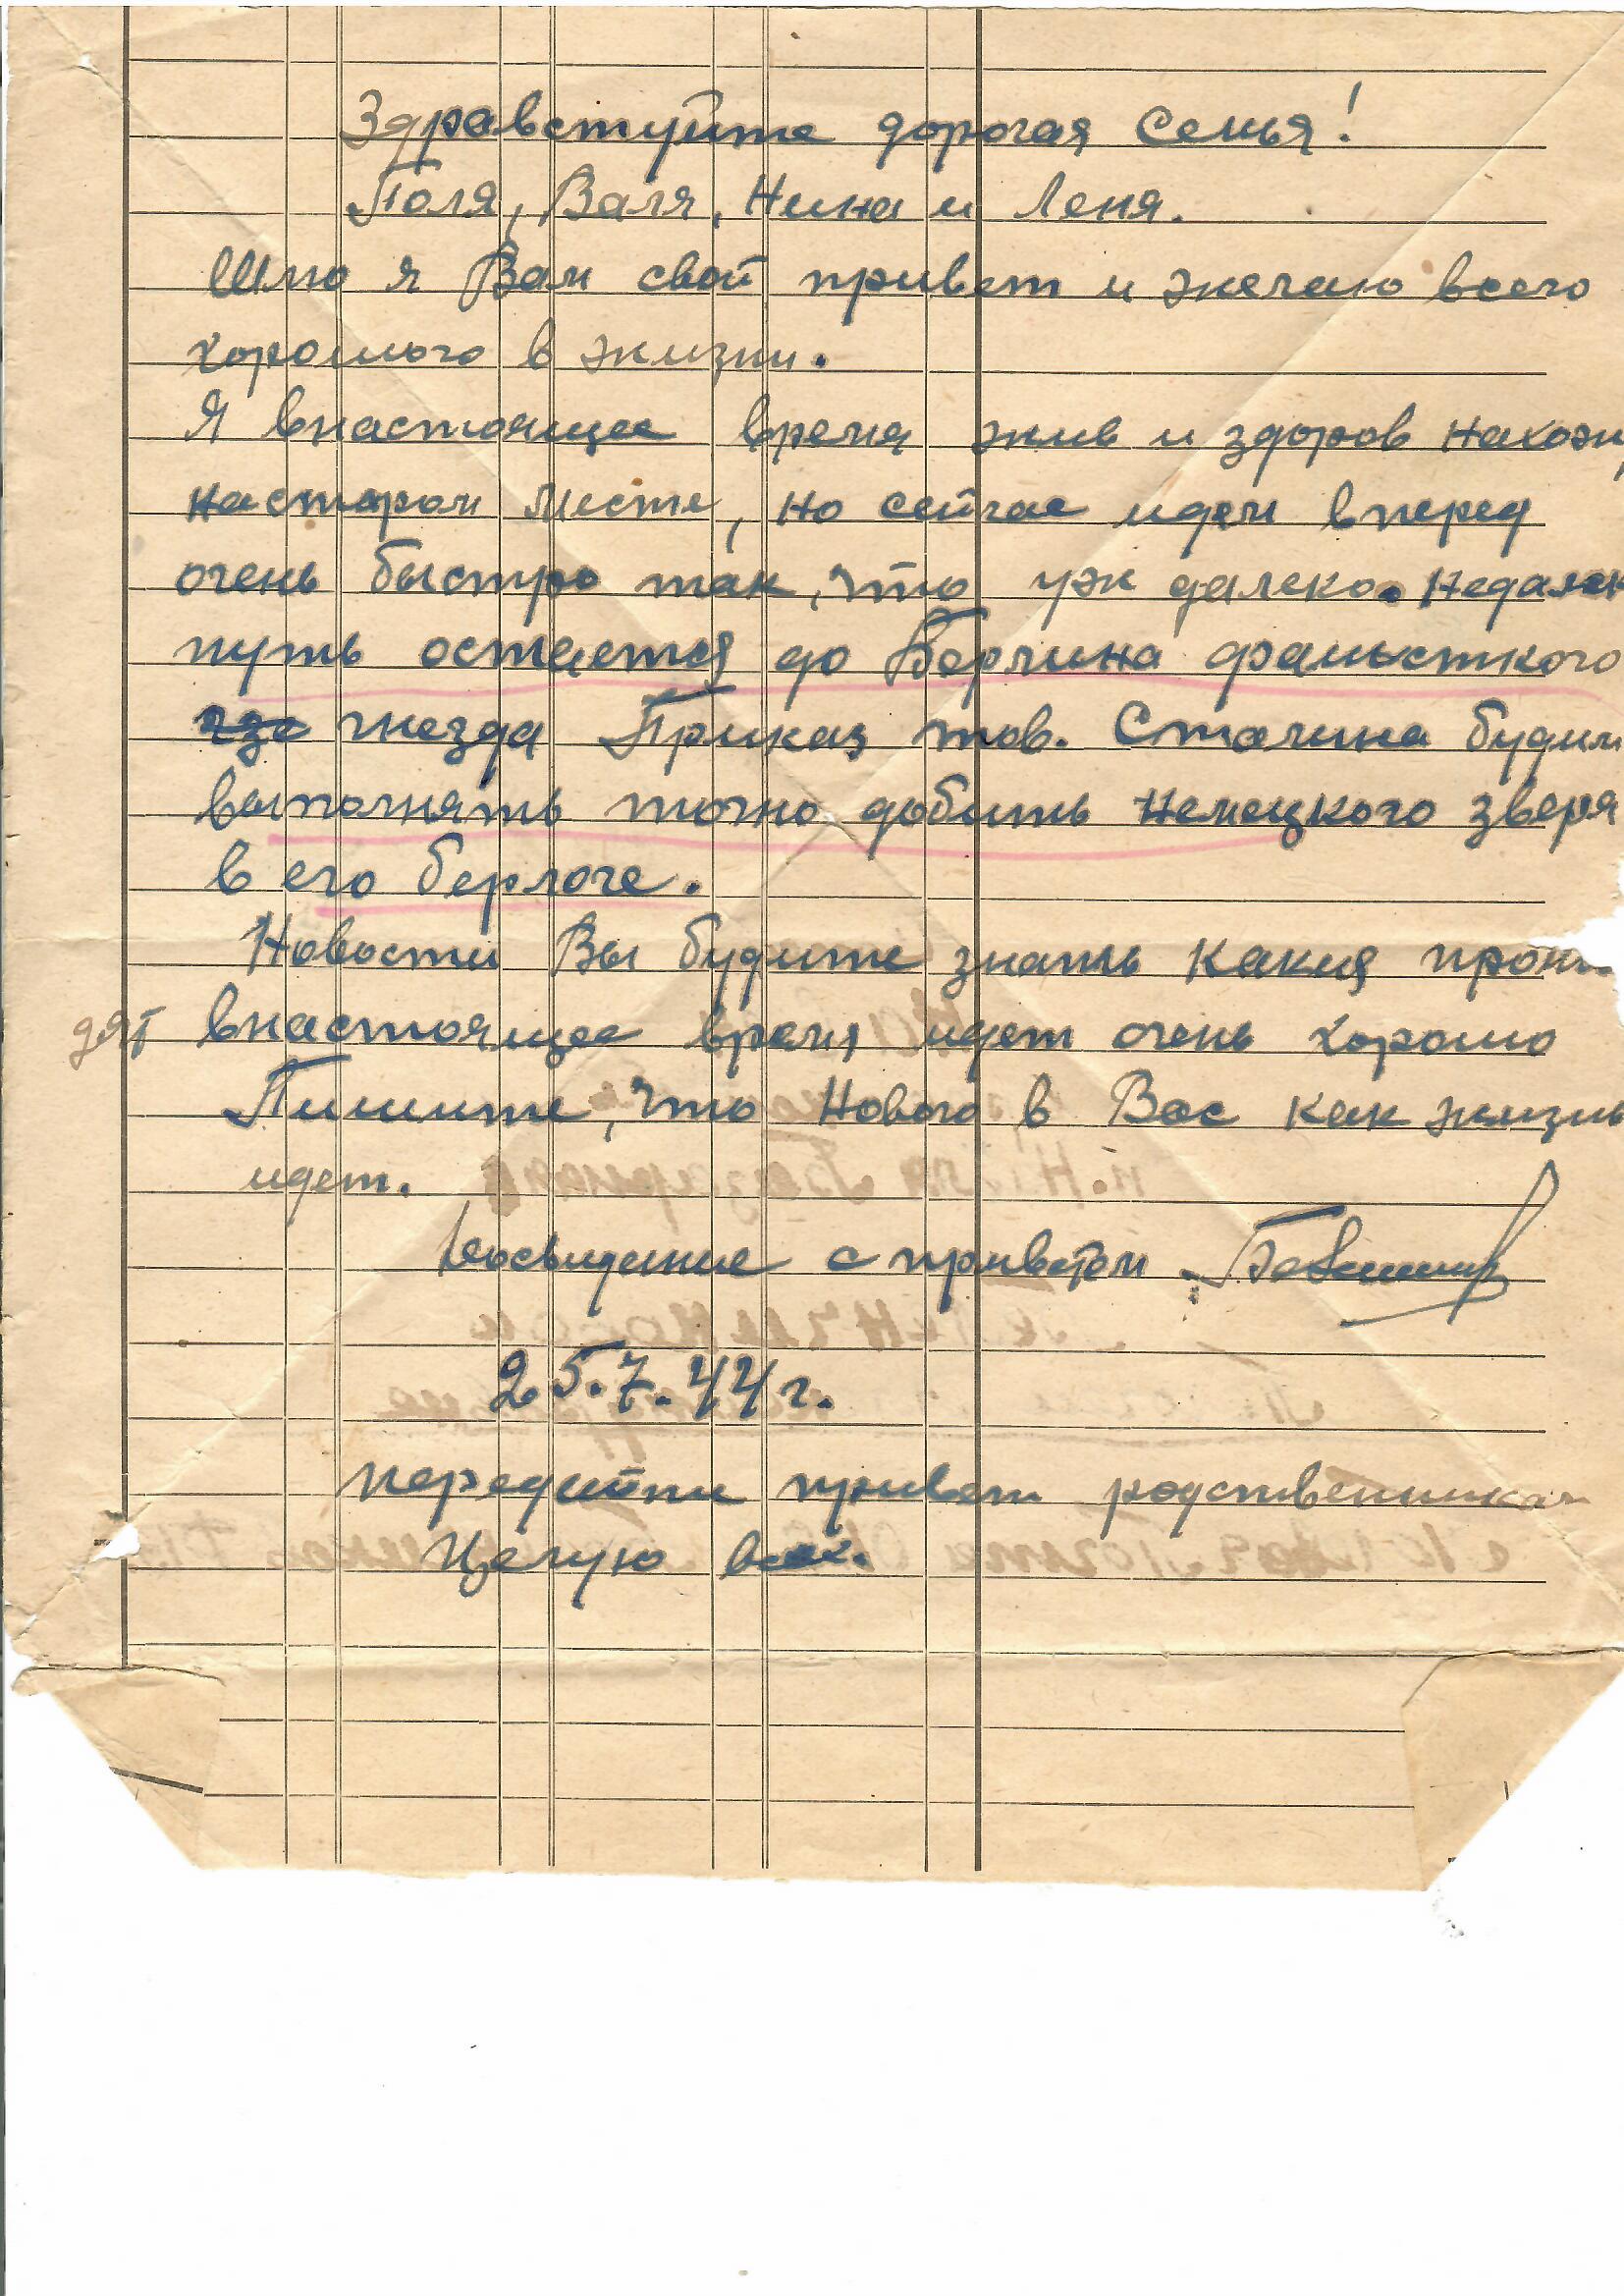 Здравствуйте дорогая Семья!
Поля, Валя, Нина и Леня.
Шлю я Вам свой привет и желаю всего
хорошого в жизни.
Я внастоящее время жив и здоров нахожу
настаром месте, но сейчас идем вперед
очень быстро так, что уж далеко. Недалек
путь остается до Берлина фашысткого
гнезда Приказ тов. Сталина будим
выполнять точно добить Немецкого зверя
в его берлоге.
Новости Вы будите знать Какия
внастоящее время идет очень хорошо
Пишите, что Нового в Вас как жизнь
идет.
Досвидание с приветом
25.7.44г.
передайти привет родственникам
Целую всех.